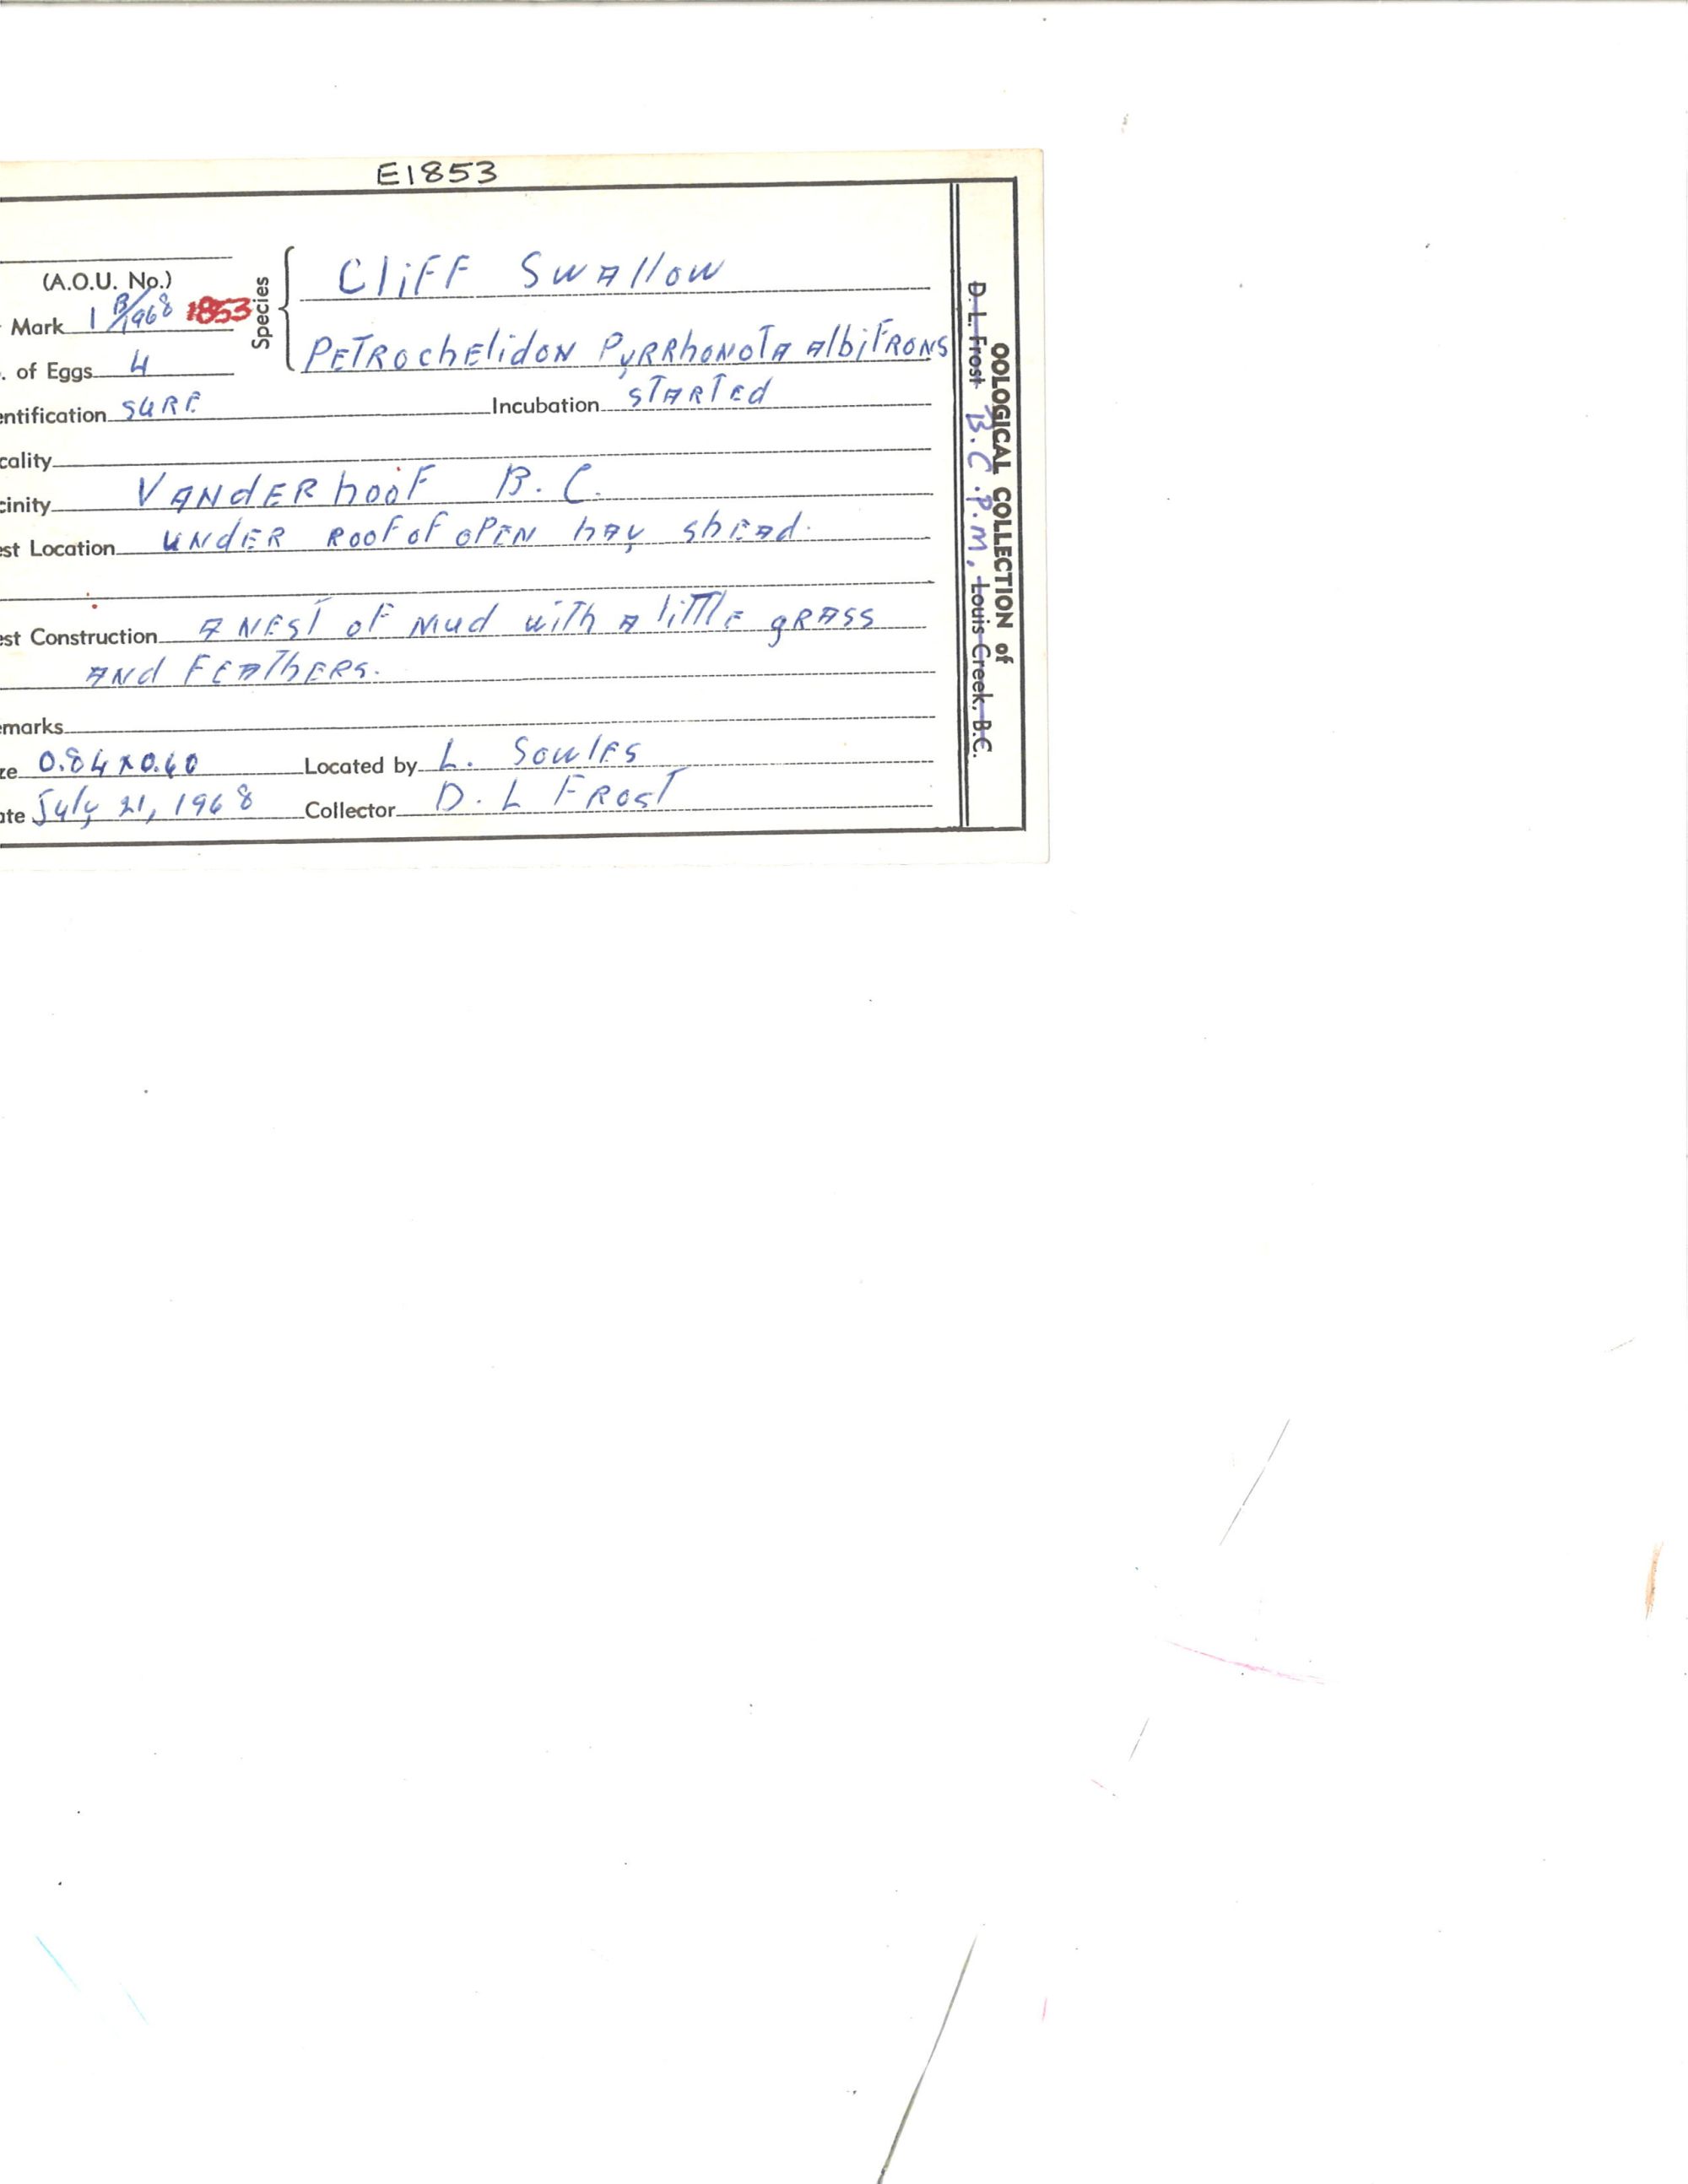 E1853
(A.O.U. No.)
Mark 1 B/1968 1853
Species
Cliff Swallow
Petrochelidon Pyrrhonota Albifrons
. of Eggs 4
entification Sure Incubation Started
cality
cinity Vanderhoof B.C.
est Location Under roof of open hay shead.
est Construction A nest of mud with a little grass
and feathers.
emarks
ze 0.84 x 0.60 Located by L. Sowles
ate July 21, 1968 Collector D. L Frost
OOLOGICAL COLLECTION of
D. L. Frost B.C.P.M, Louis Creek, B.C.